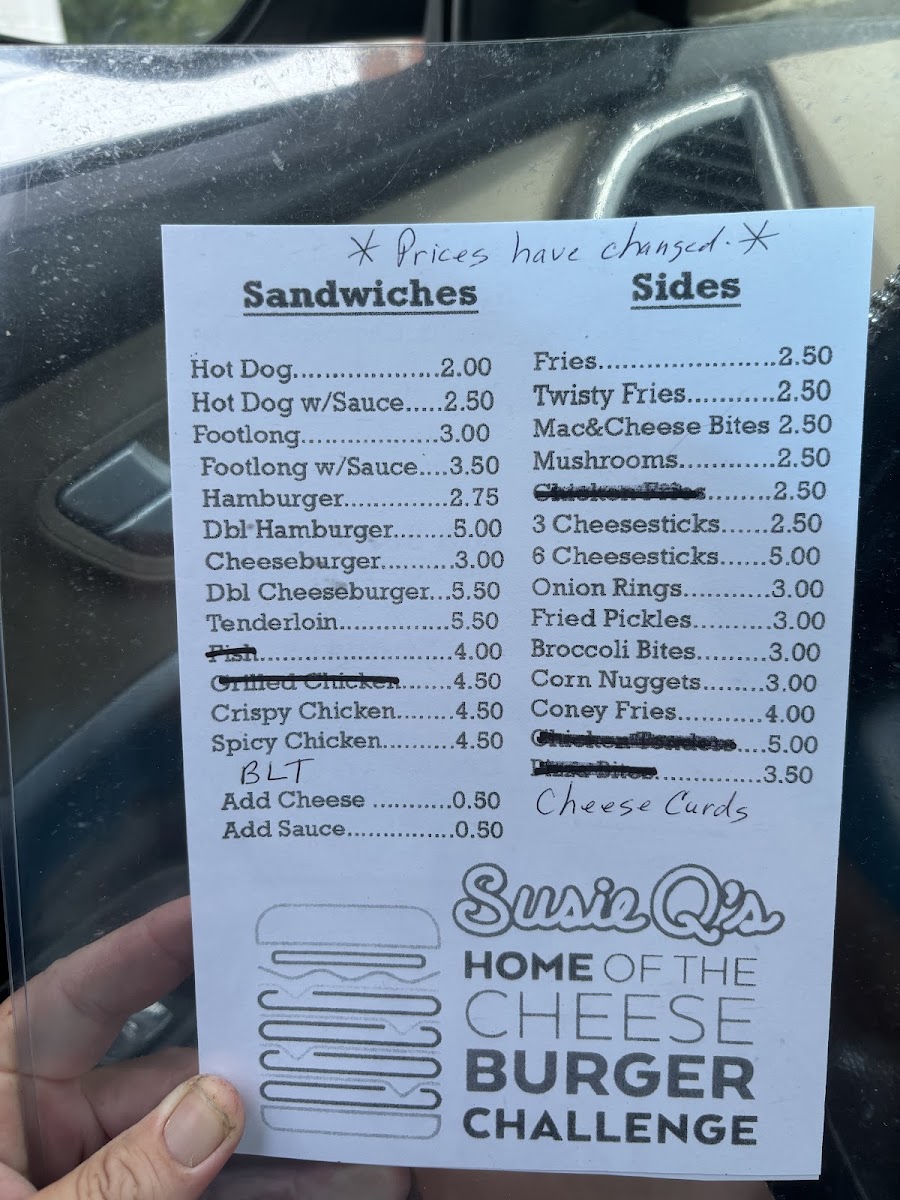 * Prices have changed. *
Sandwiches
Hot Dog....................2.00
Hot Dog w/Sauce.....2.50
Footlong...................3.00
Footlong w/Sauce....3.50
Hamburger..............2.75
Dbl Hamburger........5.00
Cheeseburger..........3.00
Dbl Cheeseburger...5.50
Tenderloin................5.50
Fish..........................4.00
Grilled Chicken.......4.50
Crispy Chicken........4.50
Spicy Chicken..........4.50
BLT
Add Cheese ...........0.50
Add Sauce...............0.50
Sides
Fries.......................2.50
Twisty Fries...........2.50
Mac&Cheese Bites 2.50
Mushrooms............2.50
Chicken Fries........2.50
3 Cheesesticks......2.50
6 Cheesesticks......5.00
Onion Rings...........3.00
Fried Pickles..........3.00
Broccoli Bites.........3.00
Corn Nuggets........3.00
Coney Fries...........4.00
Chicken Tenders....5.00
Pizza Bites.............3.50
Cheese Curds
Susie Q's
HOME OF THE
CHEESE
BURGER
CHALLENGE